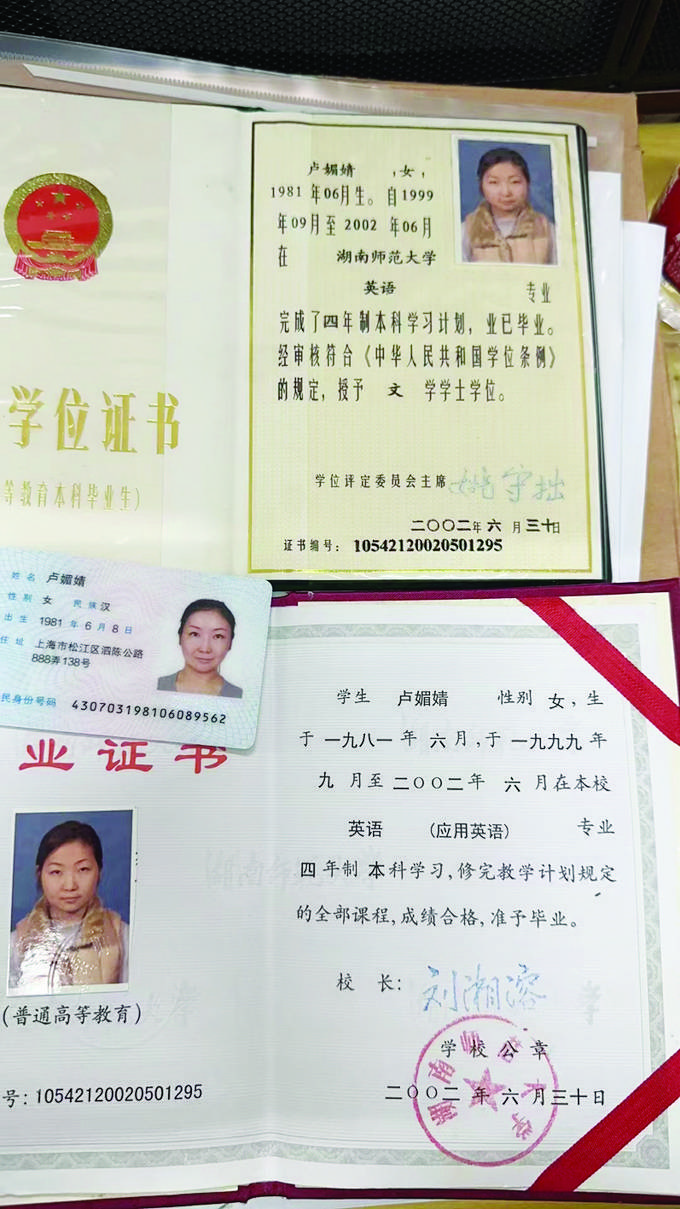 卢媚婧 ,女,
1981 年06月生。自1999
年09月至 2002 年06月
在 湖南师范大学
英语 专业
完成了四年制本科学习计划,业已毕业。
经审核符合《中华人民共和国学位条例》
的规定,授予 文 学学士学位。
学位评定委员会主席 姚守拙
二〇〇二年 六 月 三十日
证书编号: 10542120020501295
学位证书
等教育本科毕业生)
姓名 卢媚婧
性别 女 民族 汉
出生 1981 年 6 月 8 日
住址 上海市松江区泗陈公路
888弄138号
民身份号码 430703198106089562
业证书
(普通高等教育)
号: 10542120020501295
学生 卢媚婧 性别 女, 生
于 一九八一 年 六 月, 于 一九九九 年
九 月至 二〇〇二 年 六 月在本校
英语 (应用英语) 专业
四 年制 本 科学习, 修完教学计划规定
的全部课程, 成绩合格, 准予毕业。
校 长: 刘湘溶
学校公章
湖南师范大学
二〇〇二 年 六 月三十日